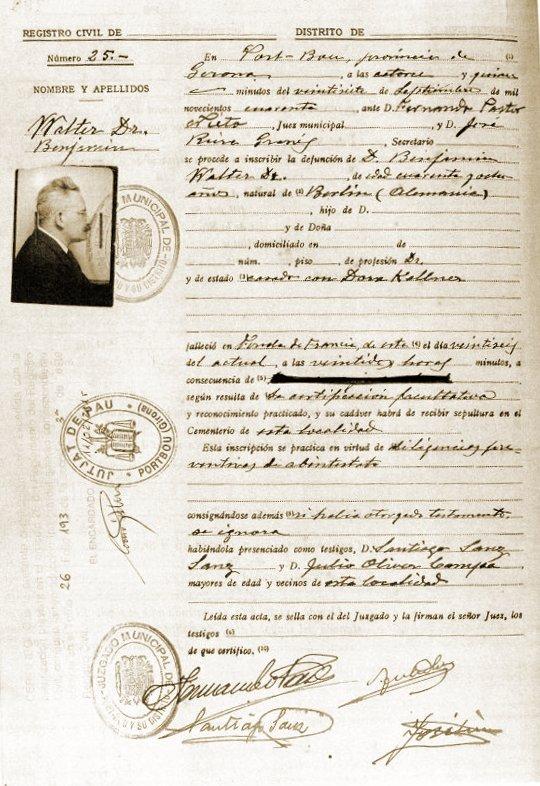 REGISTRO CIVIL DE DISTRITO DE
Número 25.-
NOMBRE Y APELLIDOS
Walter Dr.
Benjamin
En Port-Bou, provincia de (1)
Gerona, a las catorce y quince
minutos del veintisiete de Septiembre de mil
novecientos cuarenta, ante D. Fernando Pastor
Nieto, Juez municipal, y D. José
Secretario
se procede a inscribir la defunción de D. Benjamin
Walter Dr., de edad cuarenta y ocho
años, natural de (2) Berlin (Alemania)
, hijo de D.
y de Doña
, domiciliado en de
núm. , piso , de profesión Dr.
y de estado (3) casado con Dora Kellner
falleció en Fonda de Francia, de esta (4) el día veintiseis
del actual, a las veintidos y horas minutos, a
consecuencia de (5)
según resulta de la certificación facultativa
y reconocimiento practicado, y su cadáver habrá de recibir sepultura en el
Cementerio de esta localidad
Esta inscripción se practica en virtud de diligencias pre-
ventivas de abintestato
consignándose además (8) si había otorgado testamento,
se ignora
habiéndola presenciado como testigos, D. Santiago Sanz
Sanz y D. Julio Oliver Campa
mayores de edad y vecinos de esta localidad
Leída esta acta, se sella con el del Juzgado y la firman el señor Juez, los
testigos (9)
de que certifico. (10)
Santiago Sanz
JUTJAT DE PAU
PORTBOU (Girona)
EL ENCARGADO
26 193
JUZGADO MUNICIPAL DE
Y SU DISTRITO